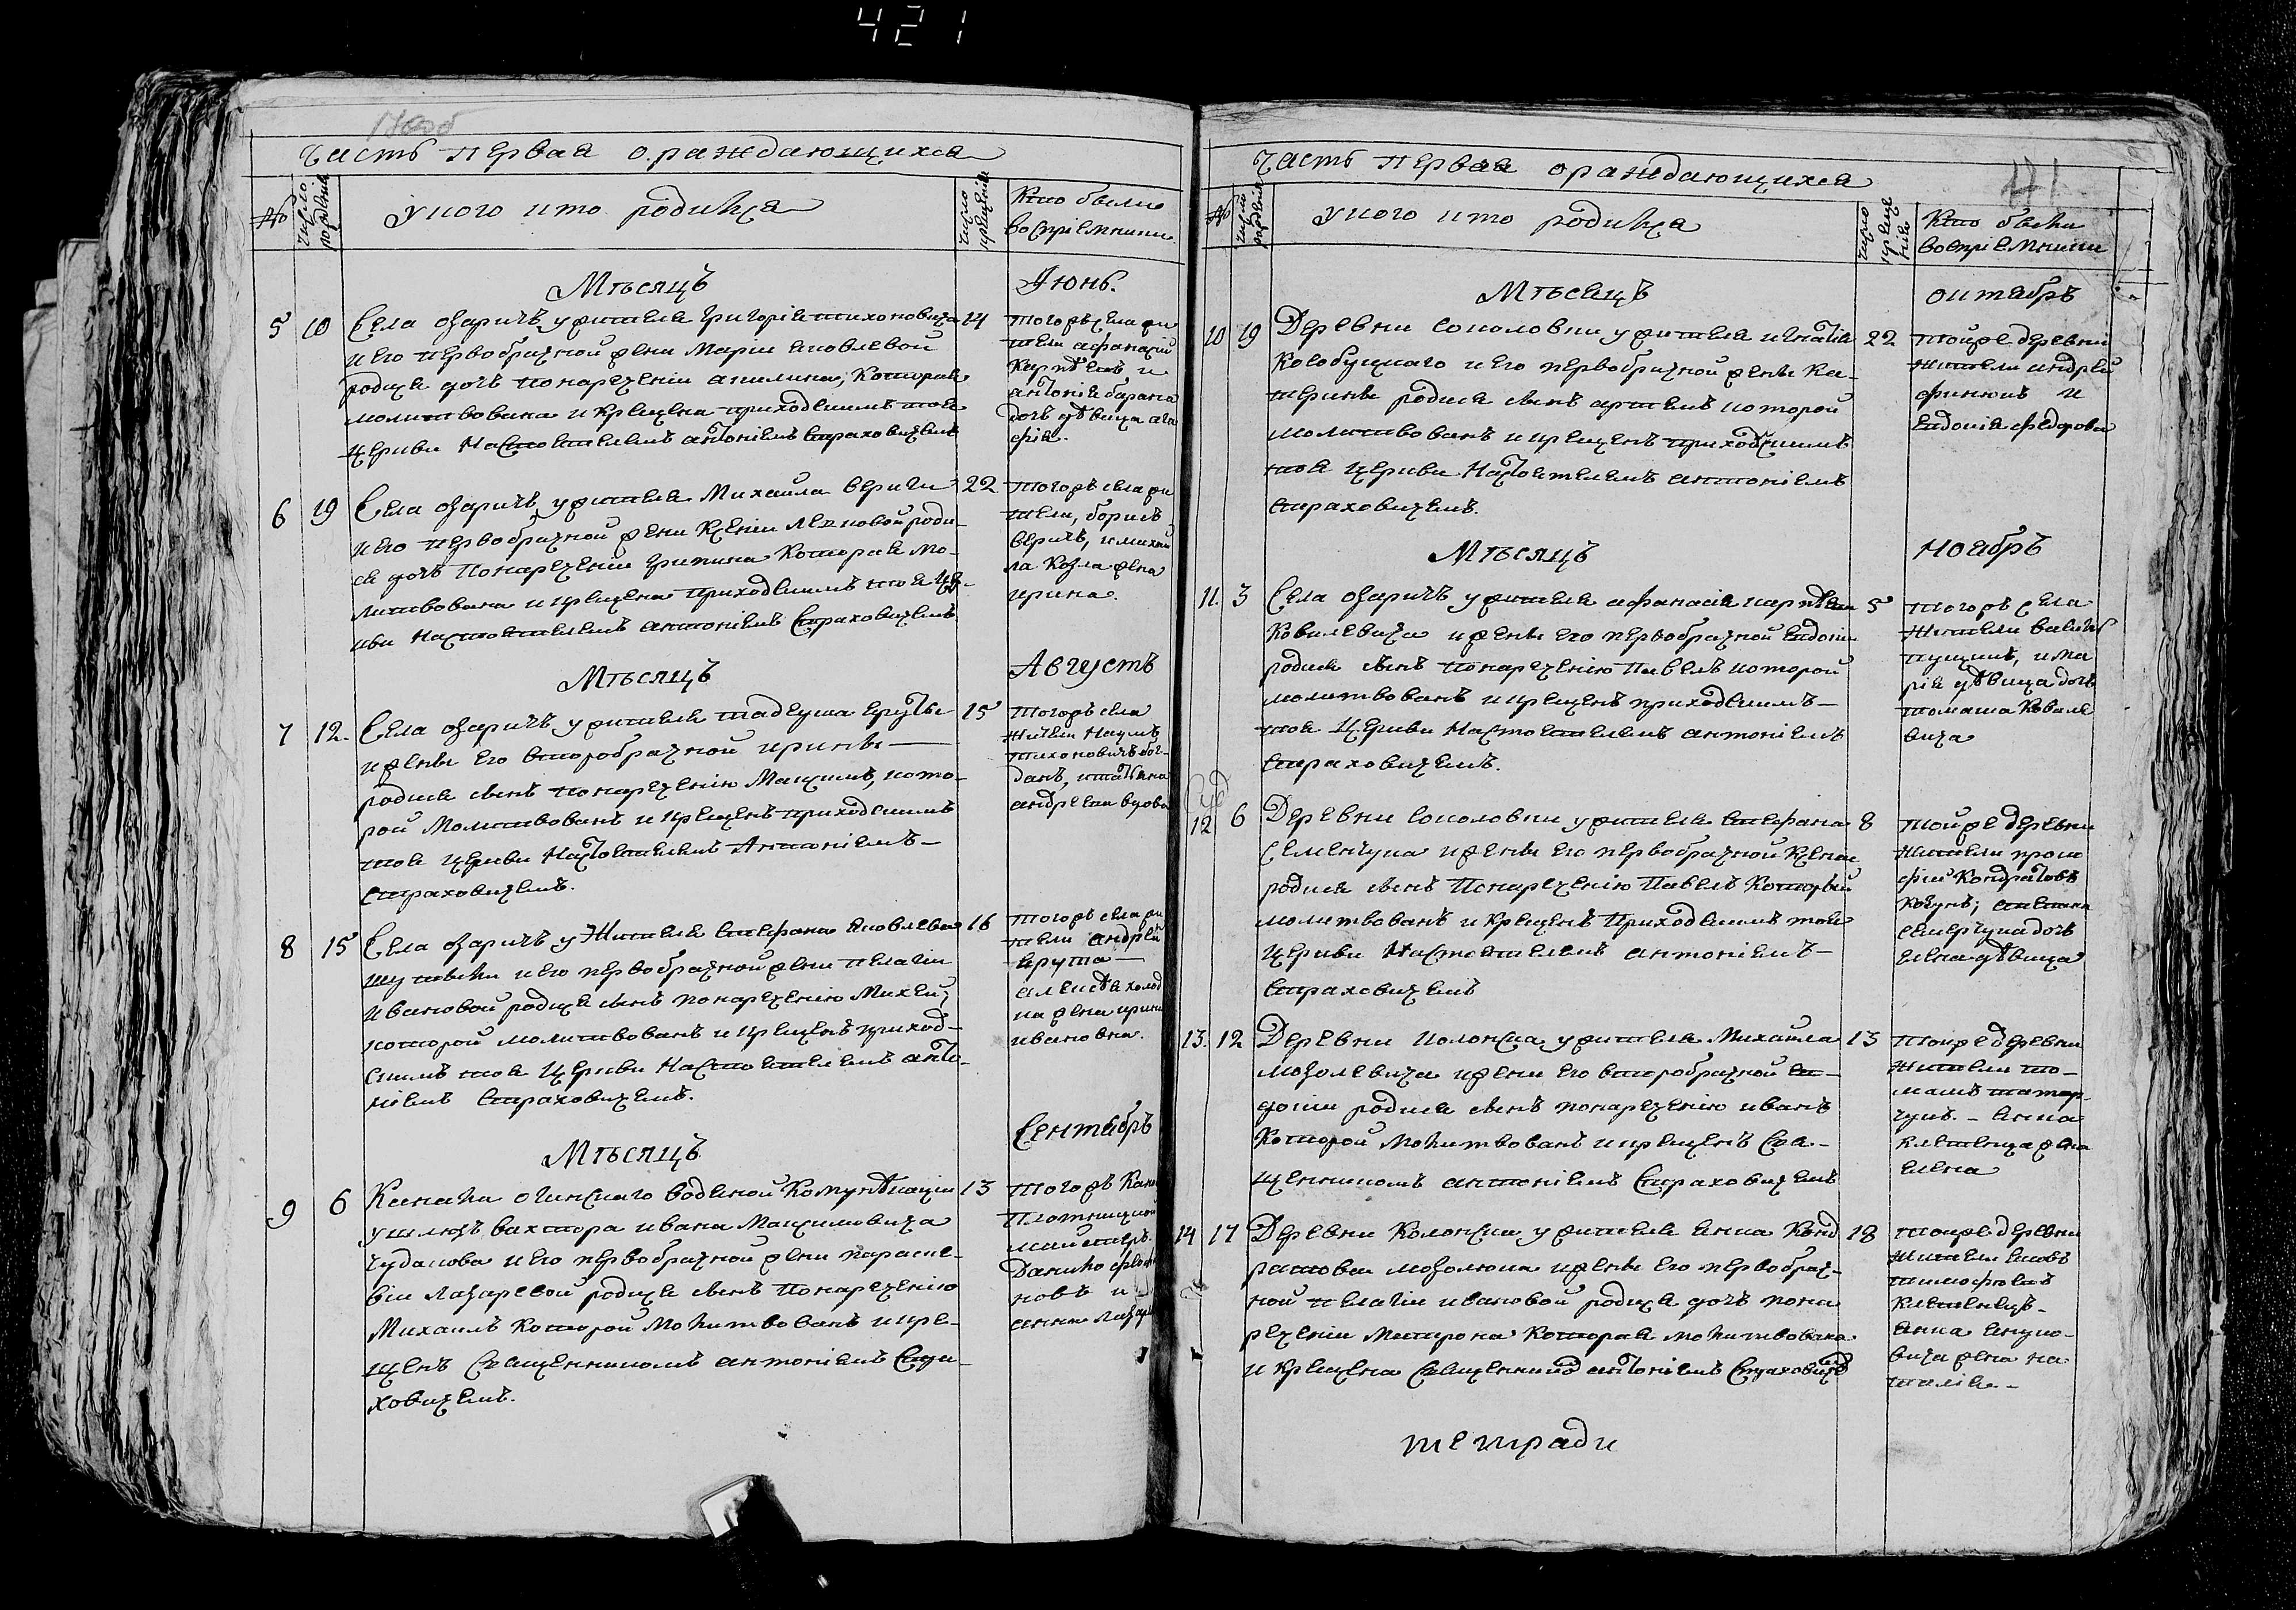 421
Часть первая о раждающихся
№
число рождения
у кого кто родился
число крещения
Кто были
восприемники
Мѣсяцъ Июнь.
5 10 Села озаричъ у жителя григорія тихоновича 14
и его первобрачной жени Маріи яковлевой
родися дочъ по наречении акилина, Которая
молитвована и крещена приходскимъ тоя
церкви Настоятелемъ антоніемъ Страховичемъ
тогожъ села жи
тели афанасій
и
антонія барана
дочъ дѣвица ага
фія.
6 19 Села озаричъ у жителя Михаила вериги 22
и его первобрачной жени Ксеніи роди-
ся дочъ по наречении Которая мо-
литвована и крещена приходскимъ тоя цер-
кви Настоятелемъ антоніемъ Страховичемъ
тогожъ села жи
тели, борисъ
и михаи
ла Козла жена
ирина.
Мѣсяцъ Августъ
7 12. Села озаричъ у жителя тадеуша 15
и жены его второбрачной ирины
родися сынъ по наречению Максимъ, кото-
рой Молитвованъ и крещенъ приходскимъ
тоя церкви Настоятелемъ Антоніемъ
Страховичемъ.
тогожъ села
жители Наумъ
тихоновичъ бог-
данъ, и татьяна
вдова
8 15 Села озаричъ у Жителя Стефана яковлева 16
и его первобрачной жени пелагіи
ивановой родися сынъ по наречению Михей,
которой молитвованъ и крещенъ приход-
скимъ тоя церкви Настоятелемъ анто-
ніемъ Страховичемъ.
тогожъ села жи
тели андрей
алексѣя холод
на жена ирина
ивановна.
Мѣсяцъ Сентябръ
9 6 Канала огинскаго водяной Комуникации 13
у шлюзъ вахтора ивана Максимовича
чудакова и его первобрачной жени параске-
віи лазаревой родися сынъ по наречению
Михаилъ Которой молитвованъ и кре-
щенъ Священникомъ антоніемъ Стра-
ховичемъ.
тогожъ
плотницкой
майстеръ
Данило
новъ и
анна
Часть первая о раждающихся
№
число рождения
у кого кто родился
число креще
ния
Кто были
восприемники
Мѣсяцъ октябръ
10 19 Деревни Соколовки у жителя игнатія 22
Кособуцкаго и его первобрачной жены Ка-
терины родися сынъ артемъ которой
молитвованъ и крещенъ приходскимъ
тоя церкви Настоятелемъ антоніемъ
Страховичемъ.
тойже деревни
Жители андрей
и
евдокія федорова
Мѣсяцъ Ноябръ
11. 3 Села озаричъ у жителя афанасія 5
Ковалевича и жены его первобрачной евдокіи
родися сынъ по наречению Павелъ которой
молитвованъ и крещенъ приходскимъ
тоя церкви Настоятелемъ антоніемъ
Страховичемъ.
тогожъ села
Жители
и ма
рія дѣвица дочъ
томаша Ковале
вича
12 6 Деревни Соколовки у жителя Стефана 8
Семенчука и жены его первобрачной Ксеніи
родися сынъ По наречению Павелъ Который
молитвованъ и Крещенъ Приходскимъ тоя
Церкви Настоятелемъ антоніемъ
Страховичемъ
тойже деревни
Жители проко
фій Кондратовъ
дочъ
елена дѣвица
13. 12 Деревни Колонска у жителя Михаила 13
мозолевича и жени его второбрачной ев-
докіи родися сынъ по наречению иванъ
Которой молитвованъ и крещенъ Свя-
щенникомъ антоніемъ Страховичемъ
тойже деревни
Жители то-
машъ татар-
чукъ. – анна
жена
елена
14 17 Деревни Колонска у жителя Конд 18
ратова мозолюка и жены его первобрач-
ной пелагіи ивановой родися дочъ по на
речении Матрона Которая молитвована
и крещена Священником антоніемъ Страховичем
тойже деревни
Жители яковъ
тимофеевъ
анна
вича жена на
талія. –
тетради